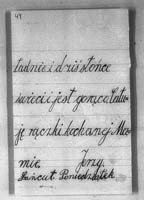 49
ładnie i dziś słońce
świeci i jest gorąco Cału-
ję rączki kochanej Ma-
mie. Jerzy.
Łańcut Poniedziałek